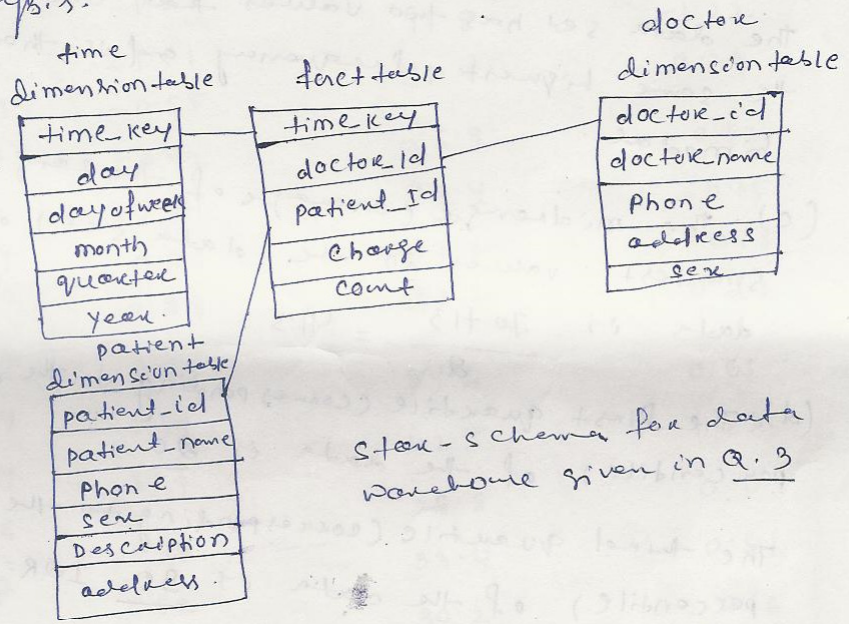 time
dimension table
time_key
day
dayofweek
month
quarter
year.
fact table
time_key
doctor_Id
patient_Id
Charge
Count
doctor
dimension table
doctor_id
doctor_name
Phone
address
sex
patient
dimension table
patient_id
patient name
Phone
sex
Description
address
Star-schema for data
warehouse given in Q.3